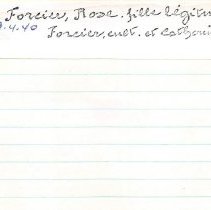 Forcier, Rose. fille légitim
9.4.40 Forcier, cult. et Catheri